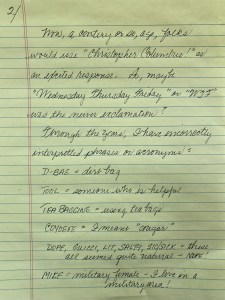 2/
Now, a century or so, ago, folks
would use "Christopher Columbus!" as
an excited response. Or, maybe
"Wednesday Thursday Friday" or "WTF"
was the newer exclamation?
Through the years, I have incorrectly
interpretted phrases or acronyms:
D-BAG = dirt bag
TOOL = someone who is helpful
TEA BAGGING = using tea bags
COYOTE = I meant "cougar"
DOPE, GUCCI, LIT, SALTY, SIC/SICK = these
all seemed quite natural - NOT!
MILF = military female - I live on a
military area!